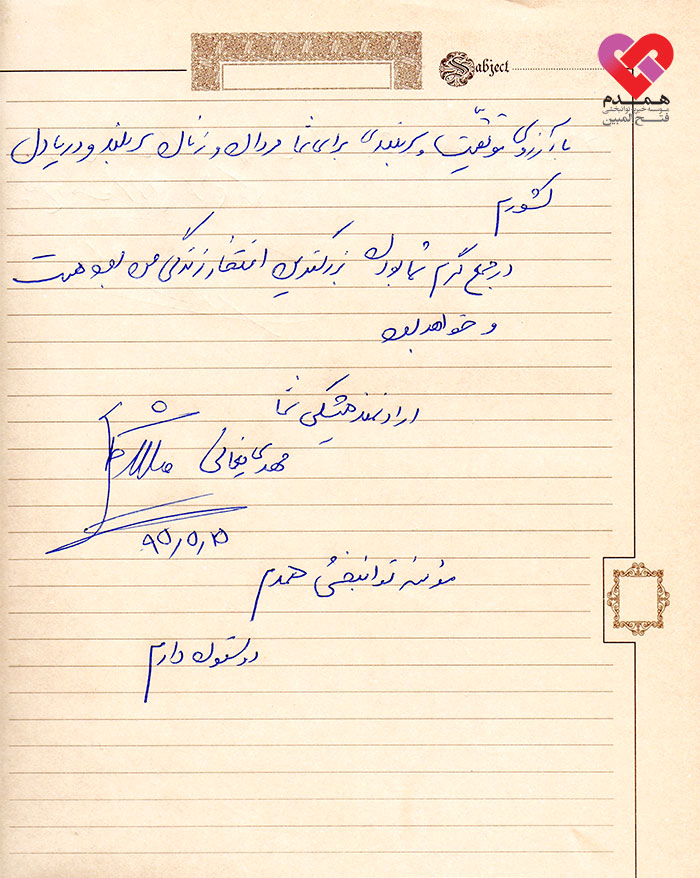 Subject
همدم
موسسه خیریه توانبخشی
فتح المبین
با آرزوی موفقیت و سربلندی برای شما مردان و زنان سربلند و دریادل
کشورم
در جمع گرم شما بودن بزرگترین افتخار زندگی من بوده هست
و خواهد بود
ارادتمند همیشگی شما
مهدی
۹۵/۵/۲۵
موسسه توانبخشی همدم
دوستون دارم